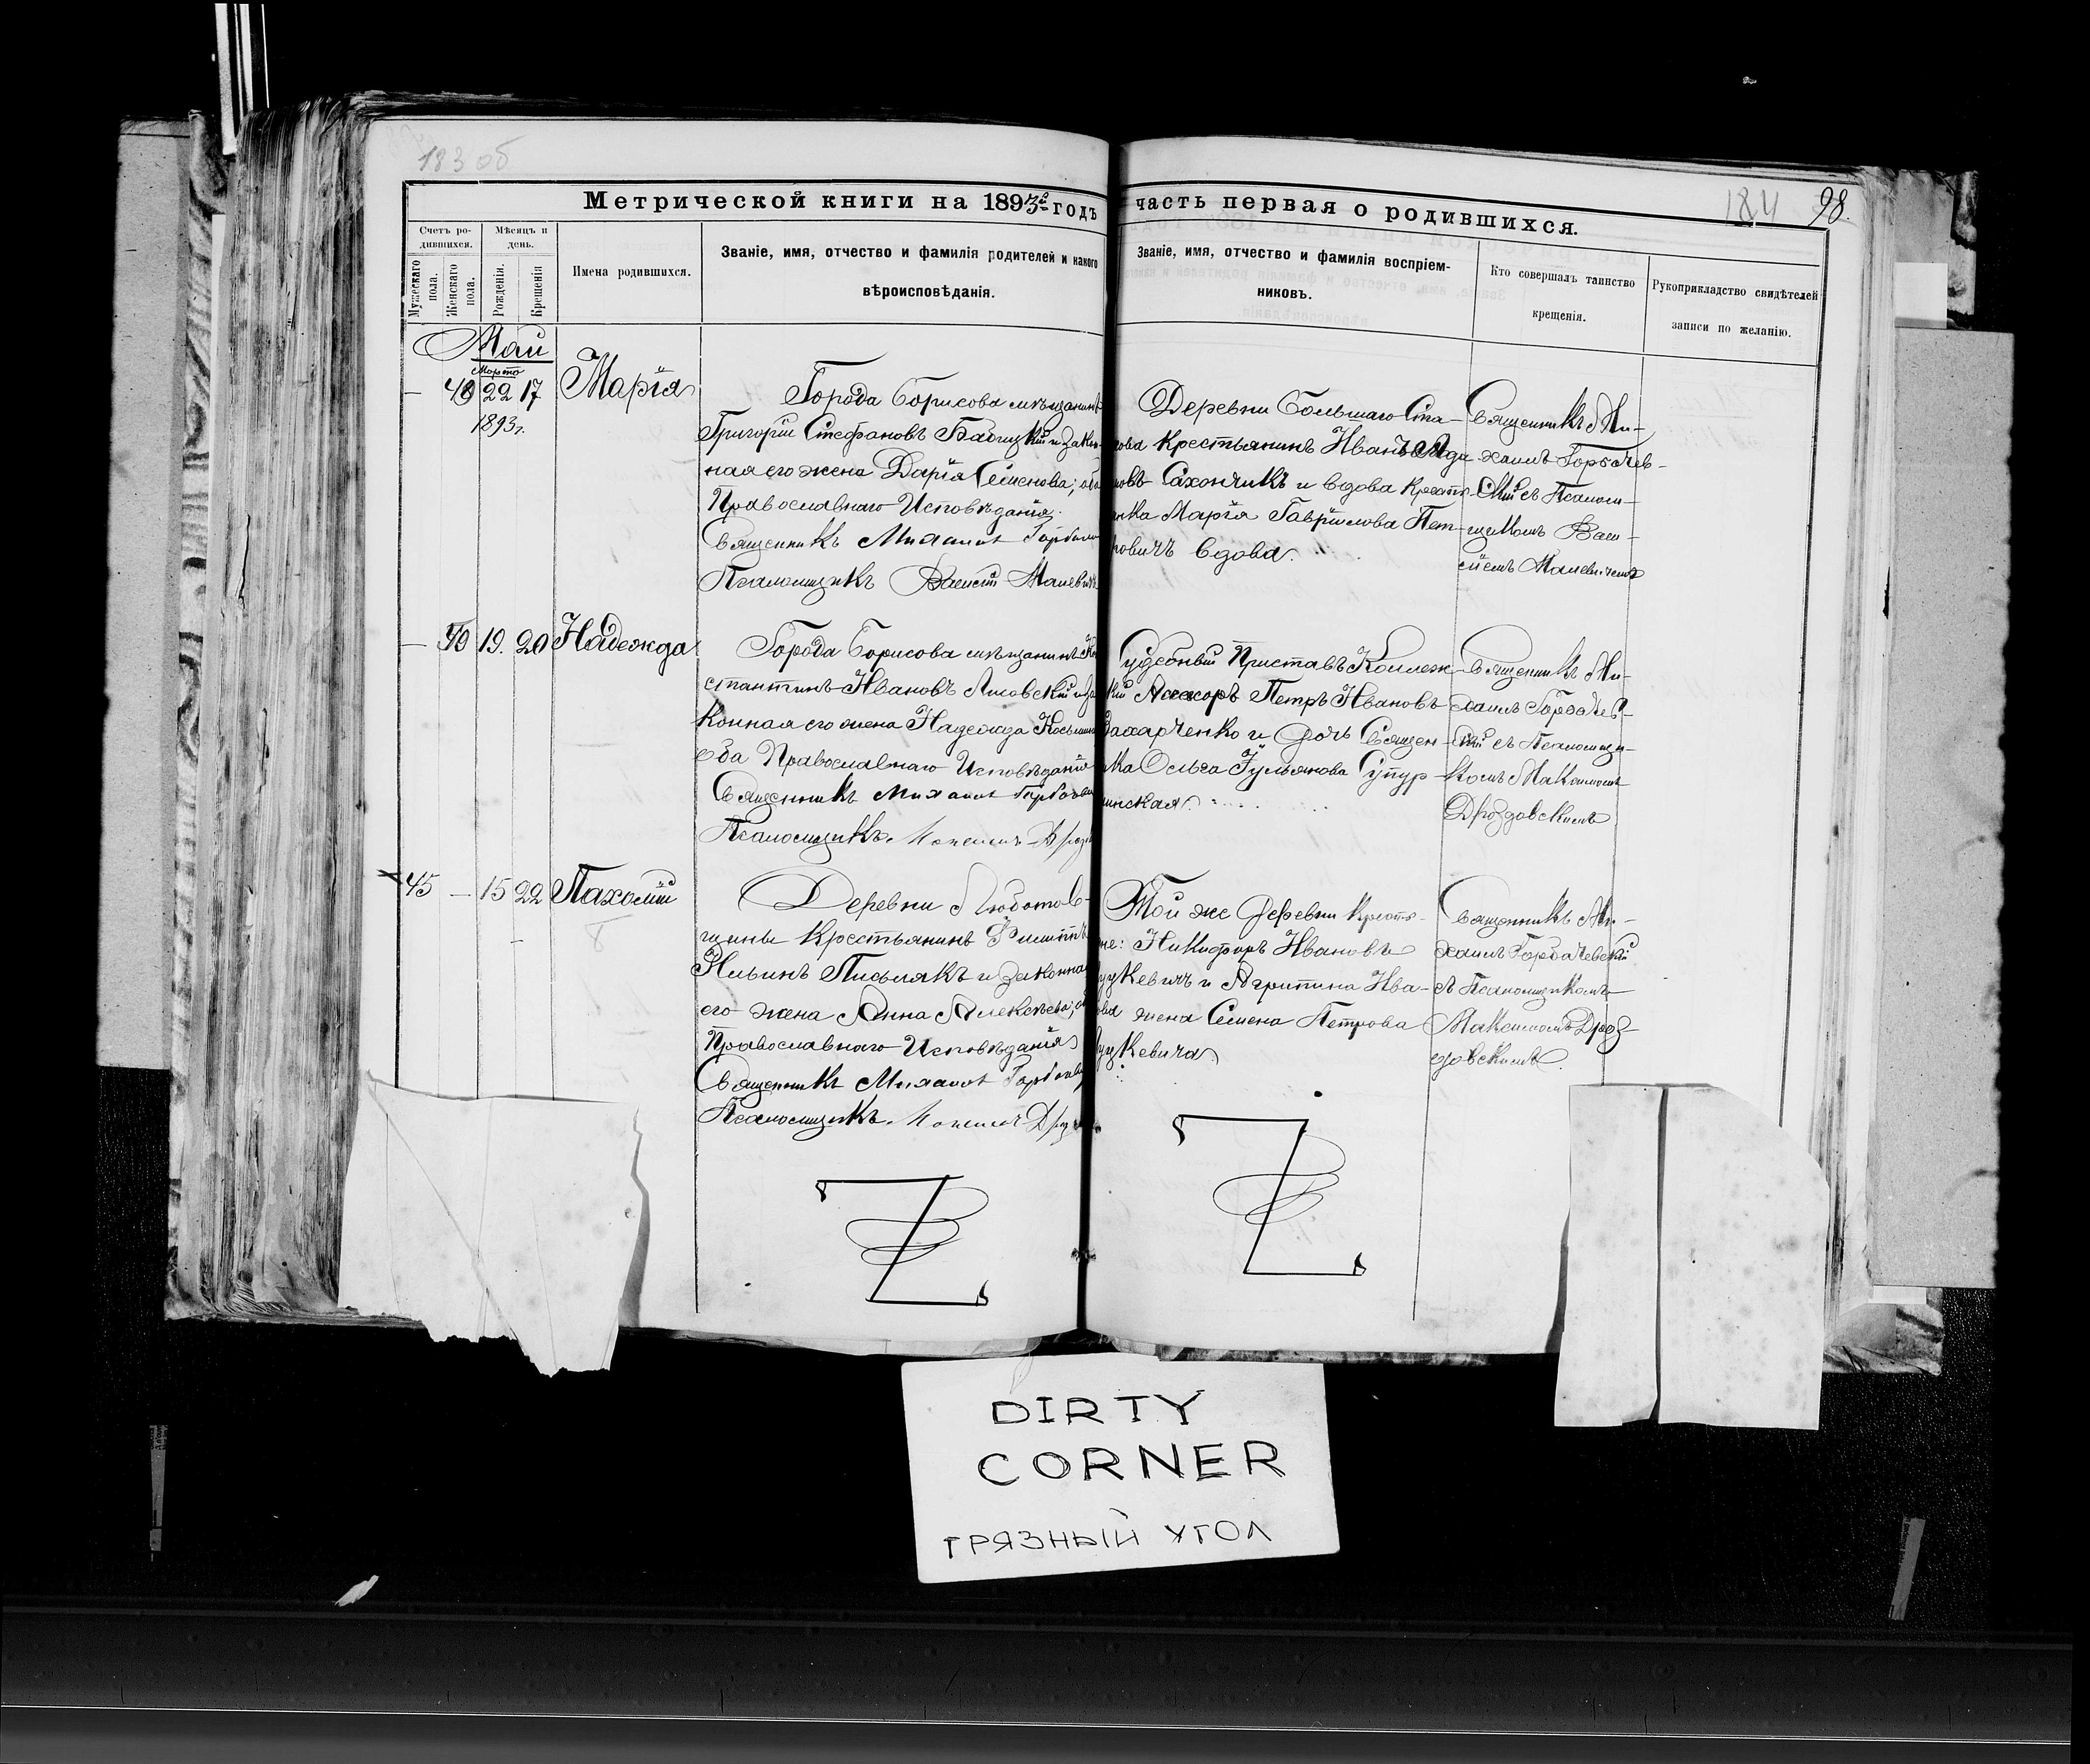 183 об
184 98.
Метрической книги на 1893й годъ
часть первая о родившихся.
Счетъ ро-
дившихся.
Мѣсяцъ и
день.
Мужескаго
пола.
Женскаго
пола.
Рожденія.
Крещенія
Имена родившихся.
Званіе, имя, отчество и фамилія родителей и какого
вѣроисповѣданія.
Званіе, имя, отчество и фамилія воспріем-
никовъ.
Кто совершалъ таинство
крещенія.
Рукоприкладство свидѣтелей
записи по желанію.
Май
Марта
— 22 17 Марія
1893г.
Города Борисова мѣщанинъ
Григорій Стефановъ и закон-
ная его жена Дарія Семенова; оба
Православнаго Исповѣданія.
Священникъ Михаилъ
Псаломщикъ Василій Малевичъ
Деревни Большаго Ста-
хова крестьянинъ Иванъ Ада
мовъ Сахончикъ и вдова крестья-
нка Марія Гавріилова Пет-
ровичъ вдова.
Священникъ Ми-
хаилъ Горбачев-
скій съ Псалом-
щикомъ Васи-
ліемъ Малевичемъ
— 19. 20 Надежда
Города Борисова мѣщанинъ Ко
стантинъ Ивановъ Лисовскій и за
конная его жена Надежда Косьмина
оба Православнаго Исповѣданія
Священникъ Михаилъ
Псаломщикъ
Судебный Приставъ Коллеж-
скій Ассесоръ Петръ Ивановъ
Захарченко и дочь Священ-
ника Ольга Іульянова Супур-
инская.
Священникъ Ми-
хаилъ Горбачев-
скій съ Псаломщи-
комъ Максимомъ
Дроздовскимъ
45 — 15 22 Пахомій
Деревни Любатов-
щины Крестьянинъ Филиппъ
Ильинъ Письмякъ и законная
его жена Анна Алексѣева; оба
Православнаго Исповѣданія
Священникъ Михаилъ
Псаломщикъ
Той же Деревни крестья-
не: Никифоръ Ивановъ
Луцкевичъ и Агрипина Ива-
нова жена Семена Петрова
Луцкевича.
Священникъ Ми-
хаилъ Горбачевскій
съ Псаломщикомъ
Максимомъ Дроз-
довскимъ.
DIRTY
CORNER
ГРЯЗНЫЙ УГОЛ